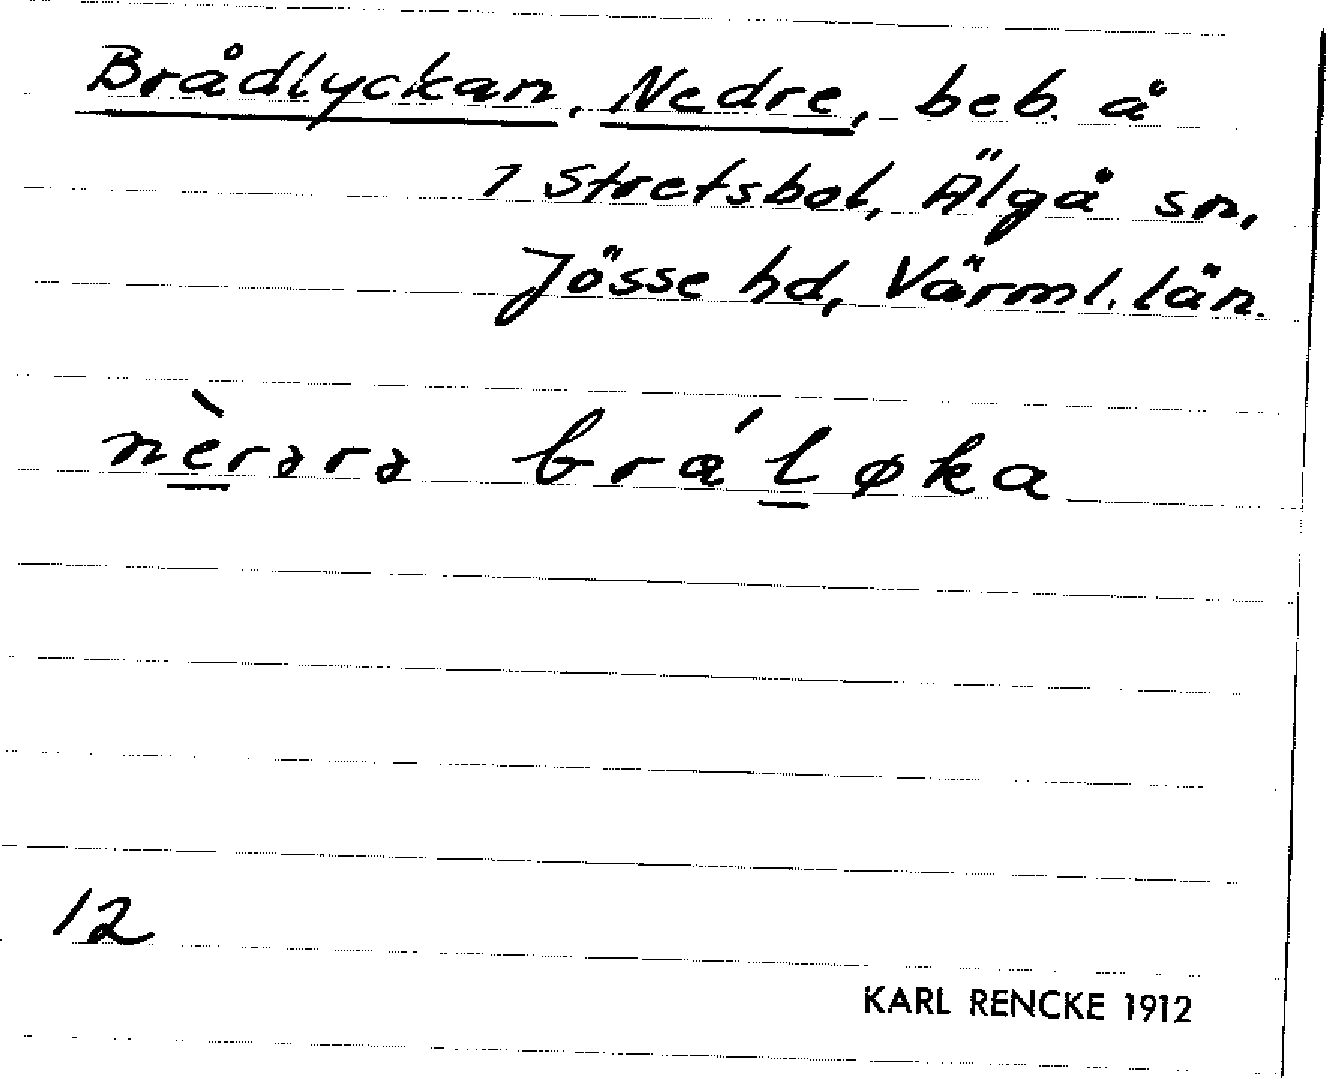 Brådlyckan, Nedre, beb. å
1 Stretsbol, Älgå sn,
Jösse hd, Värml. län.
nèrərə brá'løka
12
KARL RENCKE 1912